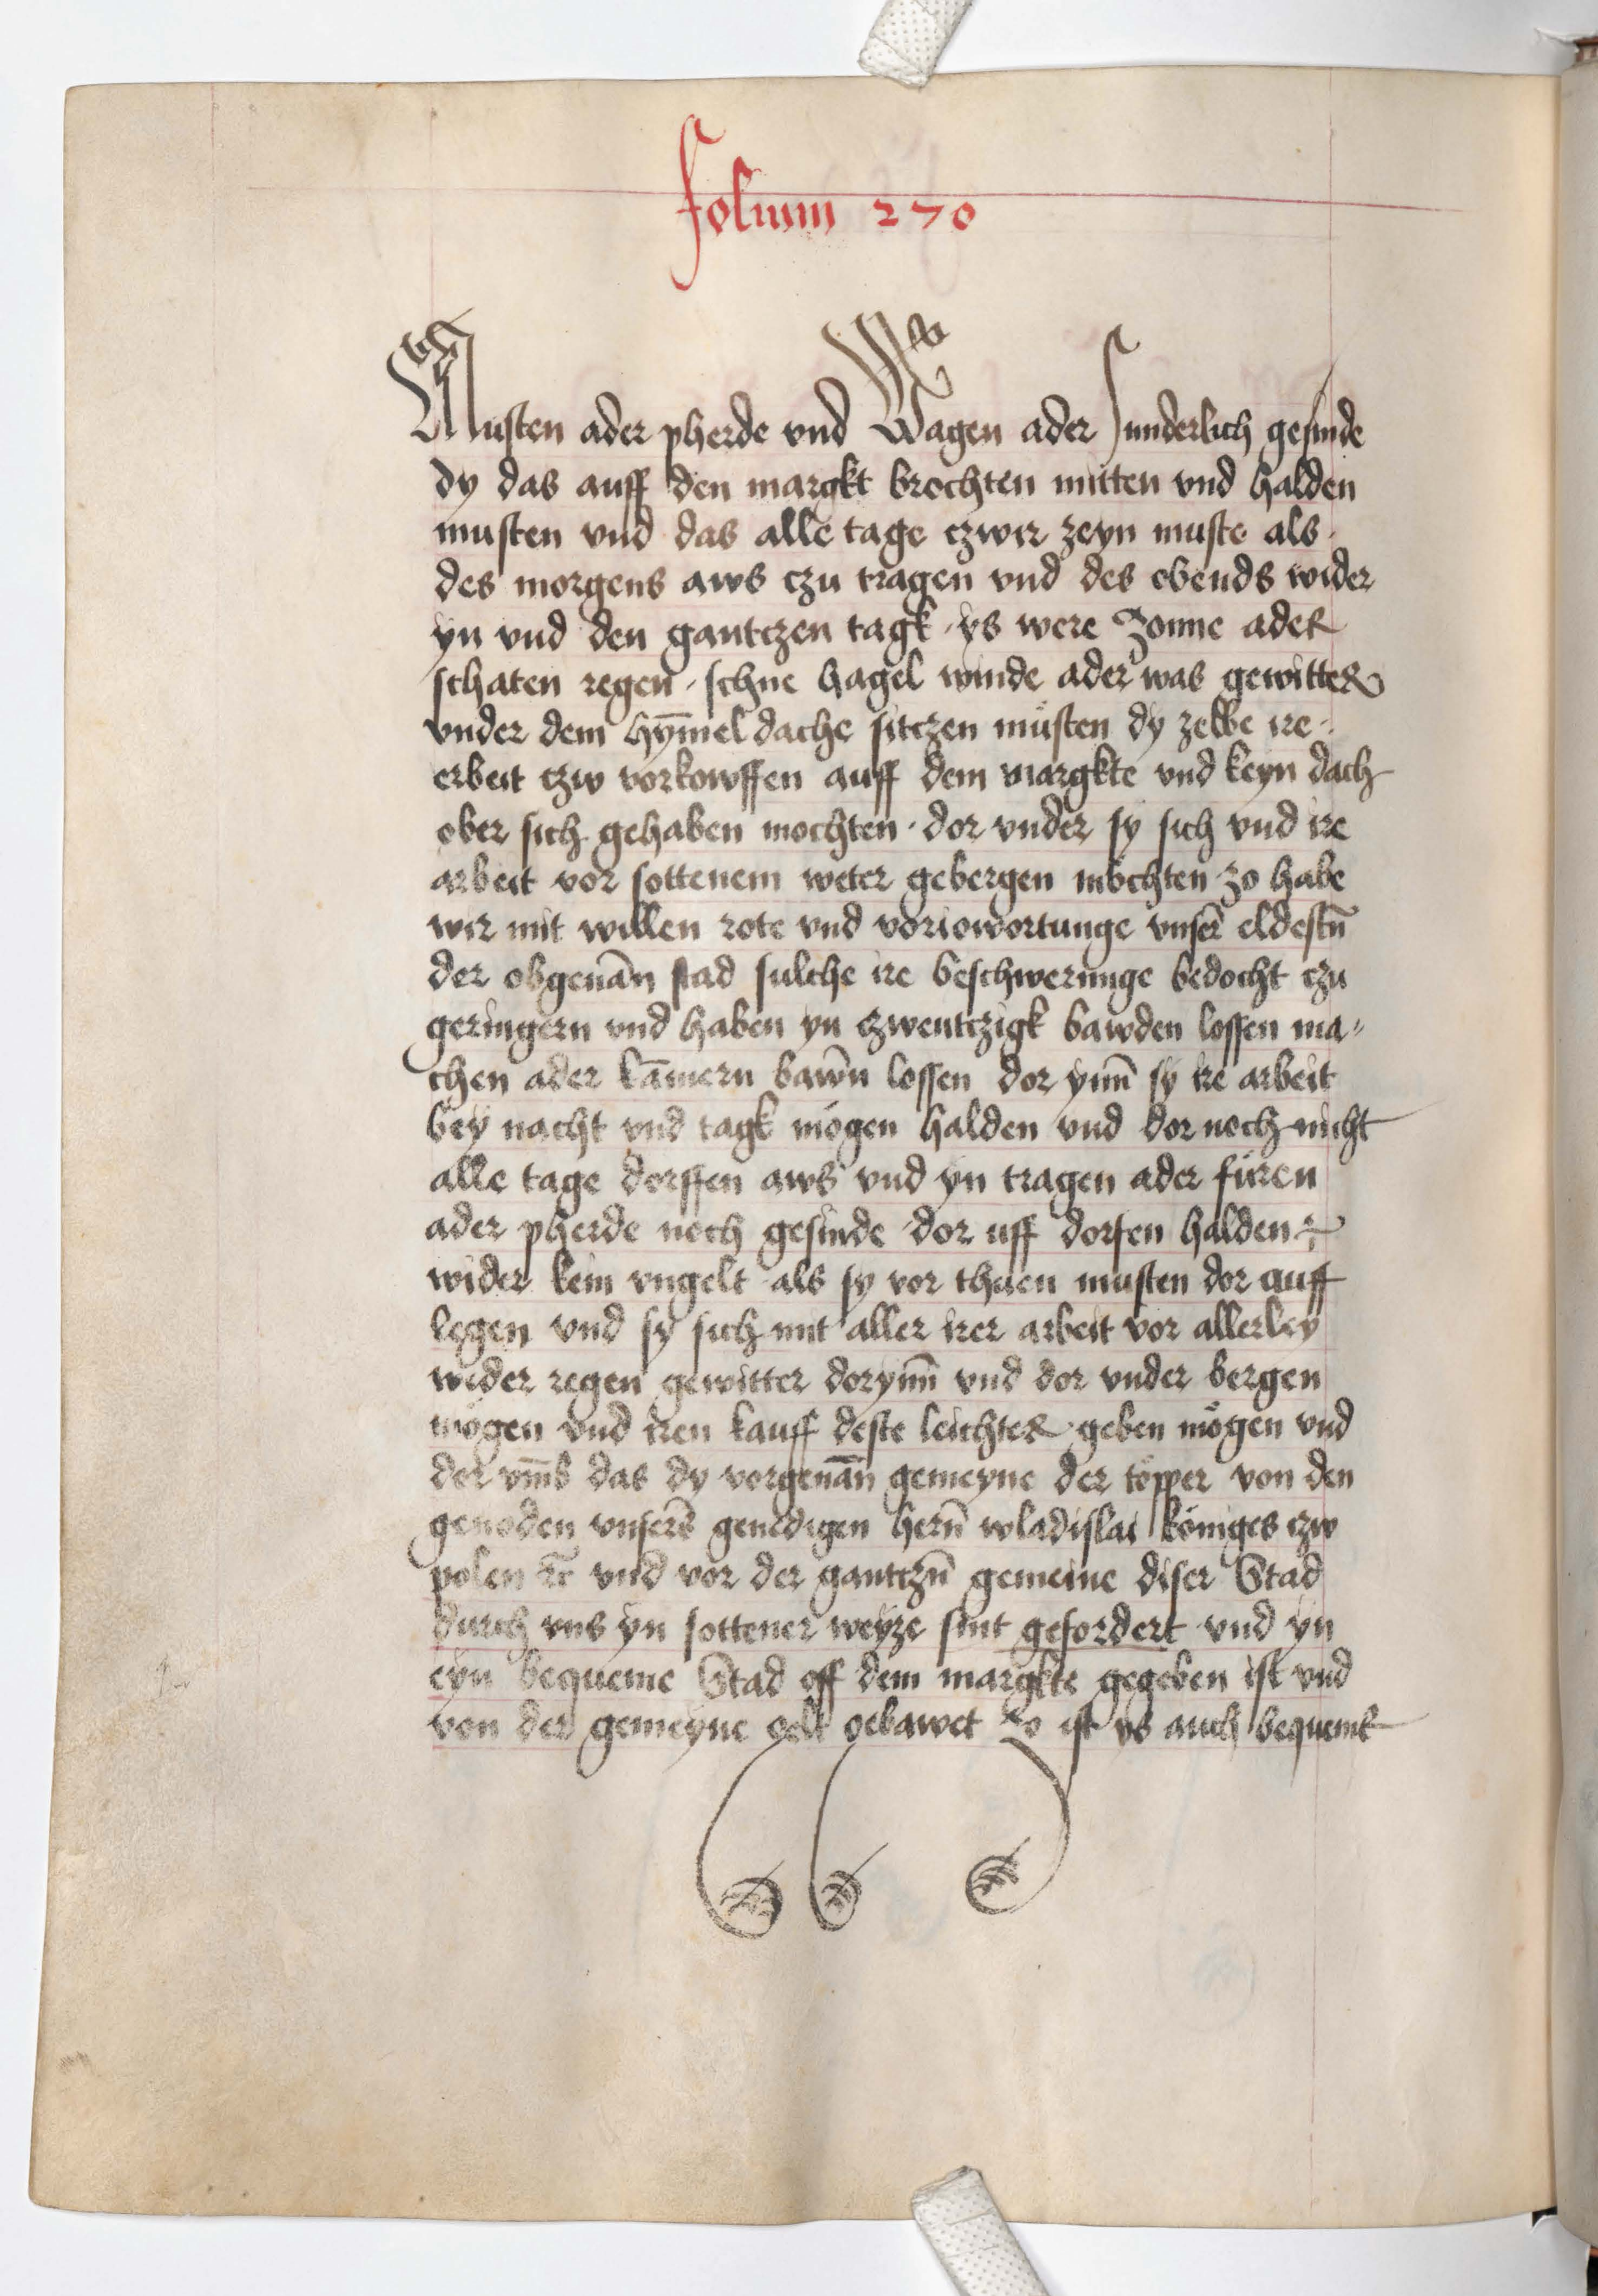 folium 270
Musten ader pherde vnd Wagen ader sunderlich gesinde
dy das auff den margkt brochten mitten vnd halden
musten vnd das alle tage czwir zeyn muste als
des morgens aws czu tragen vnd des obends wider
yn vnd den gantczen tagk · ys were Zonne ader
schaten regen · schne hagel winde ader was gewitter
vnder dem hym̄el dache sitczen müsten dy zelbe ire
erbeit czw vorkowffen auff dem margkte vnd keyn dach
ober sich gehaben mochten · dor vnder sy sich vnd ire
arbeit vor sottenem weter gebergen möchten zo habe
wir mit willen rote vnd voriowortunge vnser̄ eldestn̄
der obgenan̄ stad sulche ire beschwerunge bedocht czu
geringern vnd haben yn czwentczigk bawden lossen ma-
chen ader kam̄ern bawn̄ lossen dor ynn̄ sy ire arbeit
bey nacht vnd tagk mögen halden vnd dor noch nicht
alle tage dorffen aws vnd yn tragen ader füren
ader pherde noch gesinde dor uff dorfen halden
wider kein vngelt als sy vor thuen musten dor auff
legen vnd sy sich mit aller irer arbeit vor allerley
weder regen gewitter dorynn̄ vnd dor vnder bergen
mögen vnd iren kauff deste leichter geben mögen vnd
dor vm̄b das dy vorgenan̄ gemeyne der töpper von den
genoden vnsers̄ genedigen hern̄ wladislai königes czw
polen ꝛc̄ vnd vor der gantczn̄ gemeine diser Stad
durch vns yn sottener weyze sint gefordert vnd yn
eyn bequeme Stad off dem margkte gegeben ist vnd
von der gemeyne gelt gebawet Zo ist ys auch bequeme